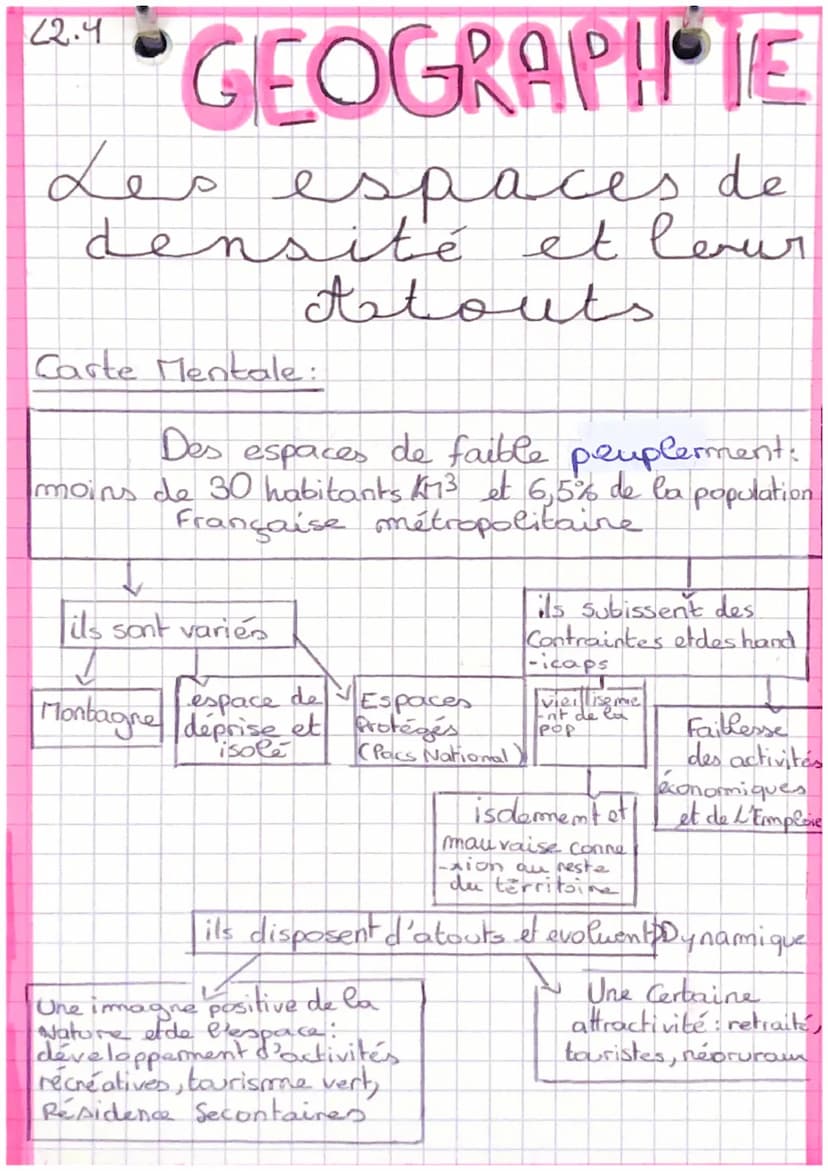 L2.4
GEOGRAPHIE
Les espaces de
densité et leur
Atouts
Carte Mentale:
Des espaces de faible peuplerment:
moins de 30 habitants Km3 et 6,5% de la population
Française métropolitaine
ils sont variés
ils subissent des
Contraintes et des hand
-icaps
Montagne
espace de
déprise et
isolé
Espaces
Protégés
(Parcs National)
vieillisseme
-nt de la
pop
Faiblesse
des activités
économiques
et de L'Emploie
isolement et
mauvaise conne
-xion au reste
du territoire
ils disposent d'atouts et evoluent Dynamique
Une imagne positive de la
Nature et de l'espace:
développement d'activités
récréatives, tourisme vert,
Résidence Secontaires
Une Certaine
attractivité: retraité,
touristes, néoruraux